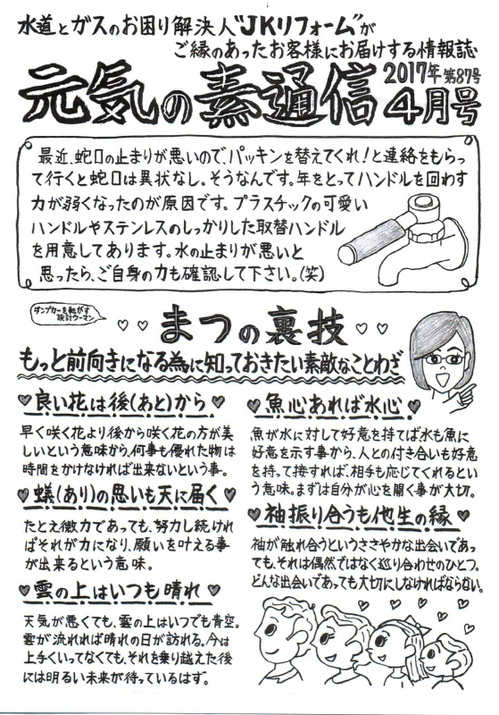 水道とガスのお困り解決人“JKリフォーム”が
ご縁のあったお客様にお届けする情報誌
元気の素通信
2017年 第87号
4月号
最近、蛇口の止まりが悪いので、パッキンを替えてくれ!と連絡をもらっ
て行くと蛇口は異状なし。そうなんです。年をとってハンドルを回わす
力が弱くなったのが原因です。プラスチックの可愛い
ハンドルやステンレスのしっかりした取替ハンドル
を用意してあります。水の止まりが悪いと
思ったら、ご自身の力も確認して下さい。(笑)
ダンプカーを転がす
設計ウーマン
♡♡ まつの裏技 ♡♡
もっと前向きになる為に知っておきたい素敵なことわざ
♥良い花は後(あと)から♥
早く咲く花より後から咲く花の方が美
しいという意味から、何事も優れた物は
時間をかけなければ出来ないという事。
♥蟻(あり)の思いも天に届く♥
たとえ微力であっても、努力し続けれ
ばそれが力になり、願いを叶える事
が出来るという意味。
♥雲の上はいつも晴れ♥
天気が悪くても、雲の上はいつでも青空。
雲が流れれば晴れの日が訪れる。今は
上手くいってなくても、それを乗り越えた後
には明るい未来が待っているはず。
♥魚心あれば水心♥
魚が水に対して好意を持てば水も魚に
好意を示す事から、人との付き合いも好意
を持って接すれば、相手も応じてくれるとい
う意味。まずは自分が心を開く事が大切。
♥袖振り合うも他生の縁♥
袖が触れ合うというささやかな出会いであっ
ても、それは偶然ではなく巡り合わせのひとつ。
どんな出会いであっても大切にしなければならない。